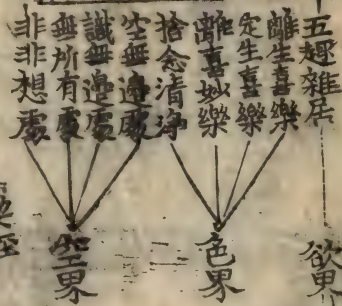 五趣雜居
離生喜樂
定生喜樂
離喜妙樂
捨念清淨
空無邊處
識無邊處
無所有處
非非想處
欲界
色界
空界